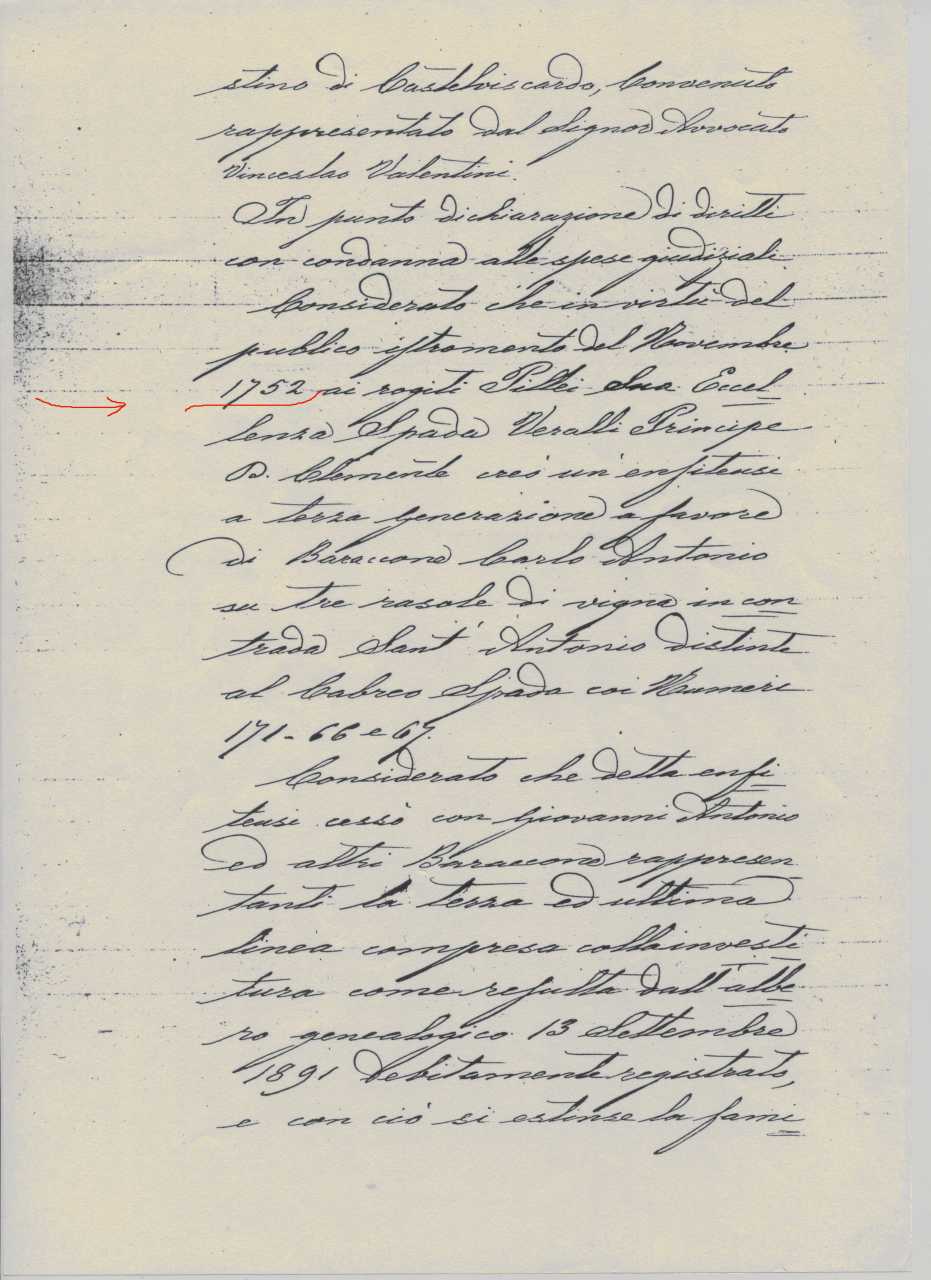 stino di Castelviscardo, Convenuto
rappresentato dal Signor Avvocato
Vinceslao Valentini.
In punto dichiarazione di diritti
con condanna alle spese giudiziali
Considerato che in virtù del
publico istromento del Novembre
1752 ai rogiti Pillei Sua Eccel
lenza Spada Veralli Principe
D. Clemente creò un'enfiteusi
a terza generazione a favore
di Baraccone Carlo Antonio
su tre rasole di vigna in con
trada Sant'Antonio distinte
al Cabreo Spada coi Numeri
171-66 e 67.
Considerato che detta enfi
teusi cessò con Giovanni Antonio
ed altri Baraccone rappresen
tanti la terza ed ultima
linea compresa colla investi
tura come risulta dall'albe
ro genealogico 13 Settembre
1891 debitamente registrato,
e con ciò si estinse la fami